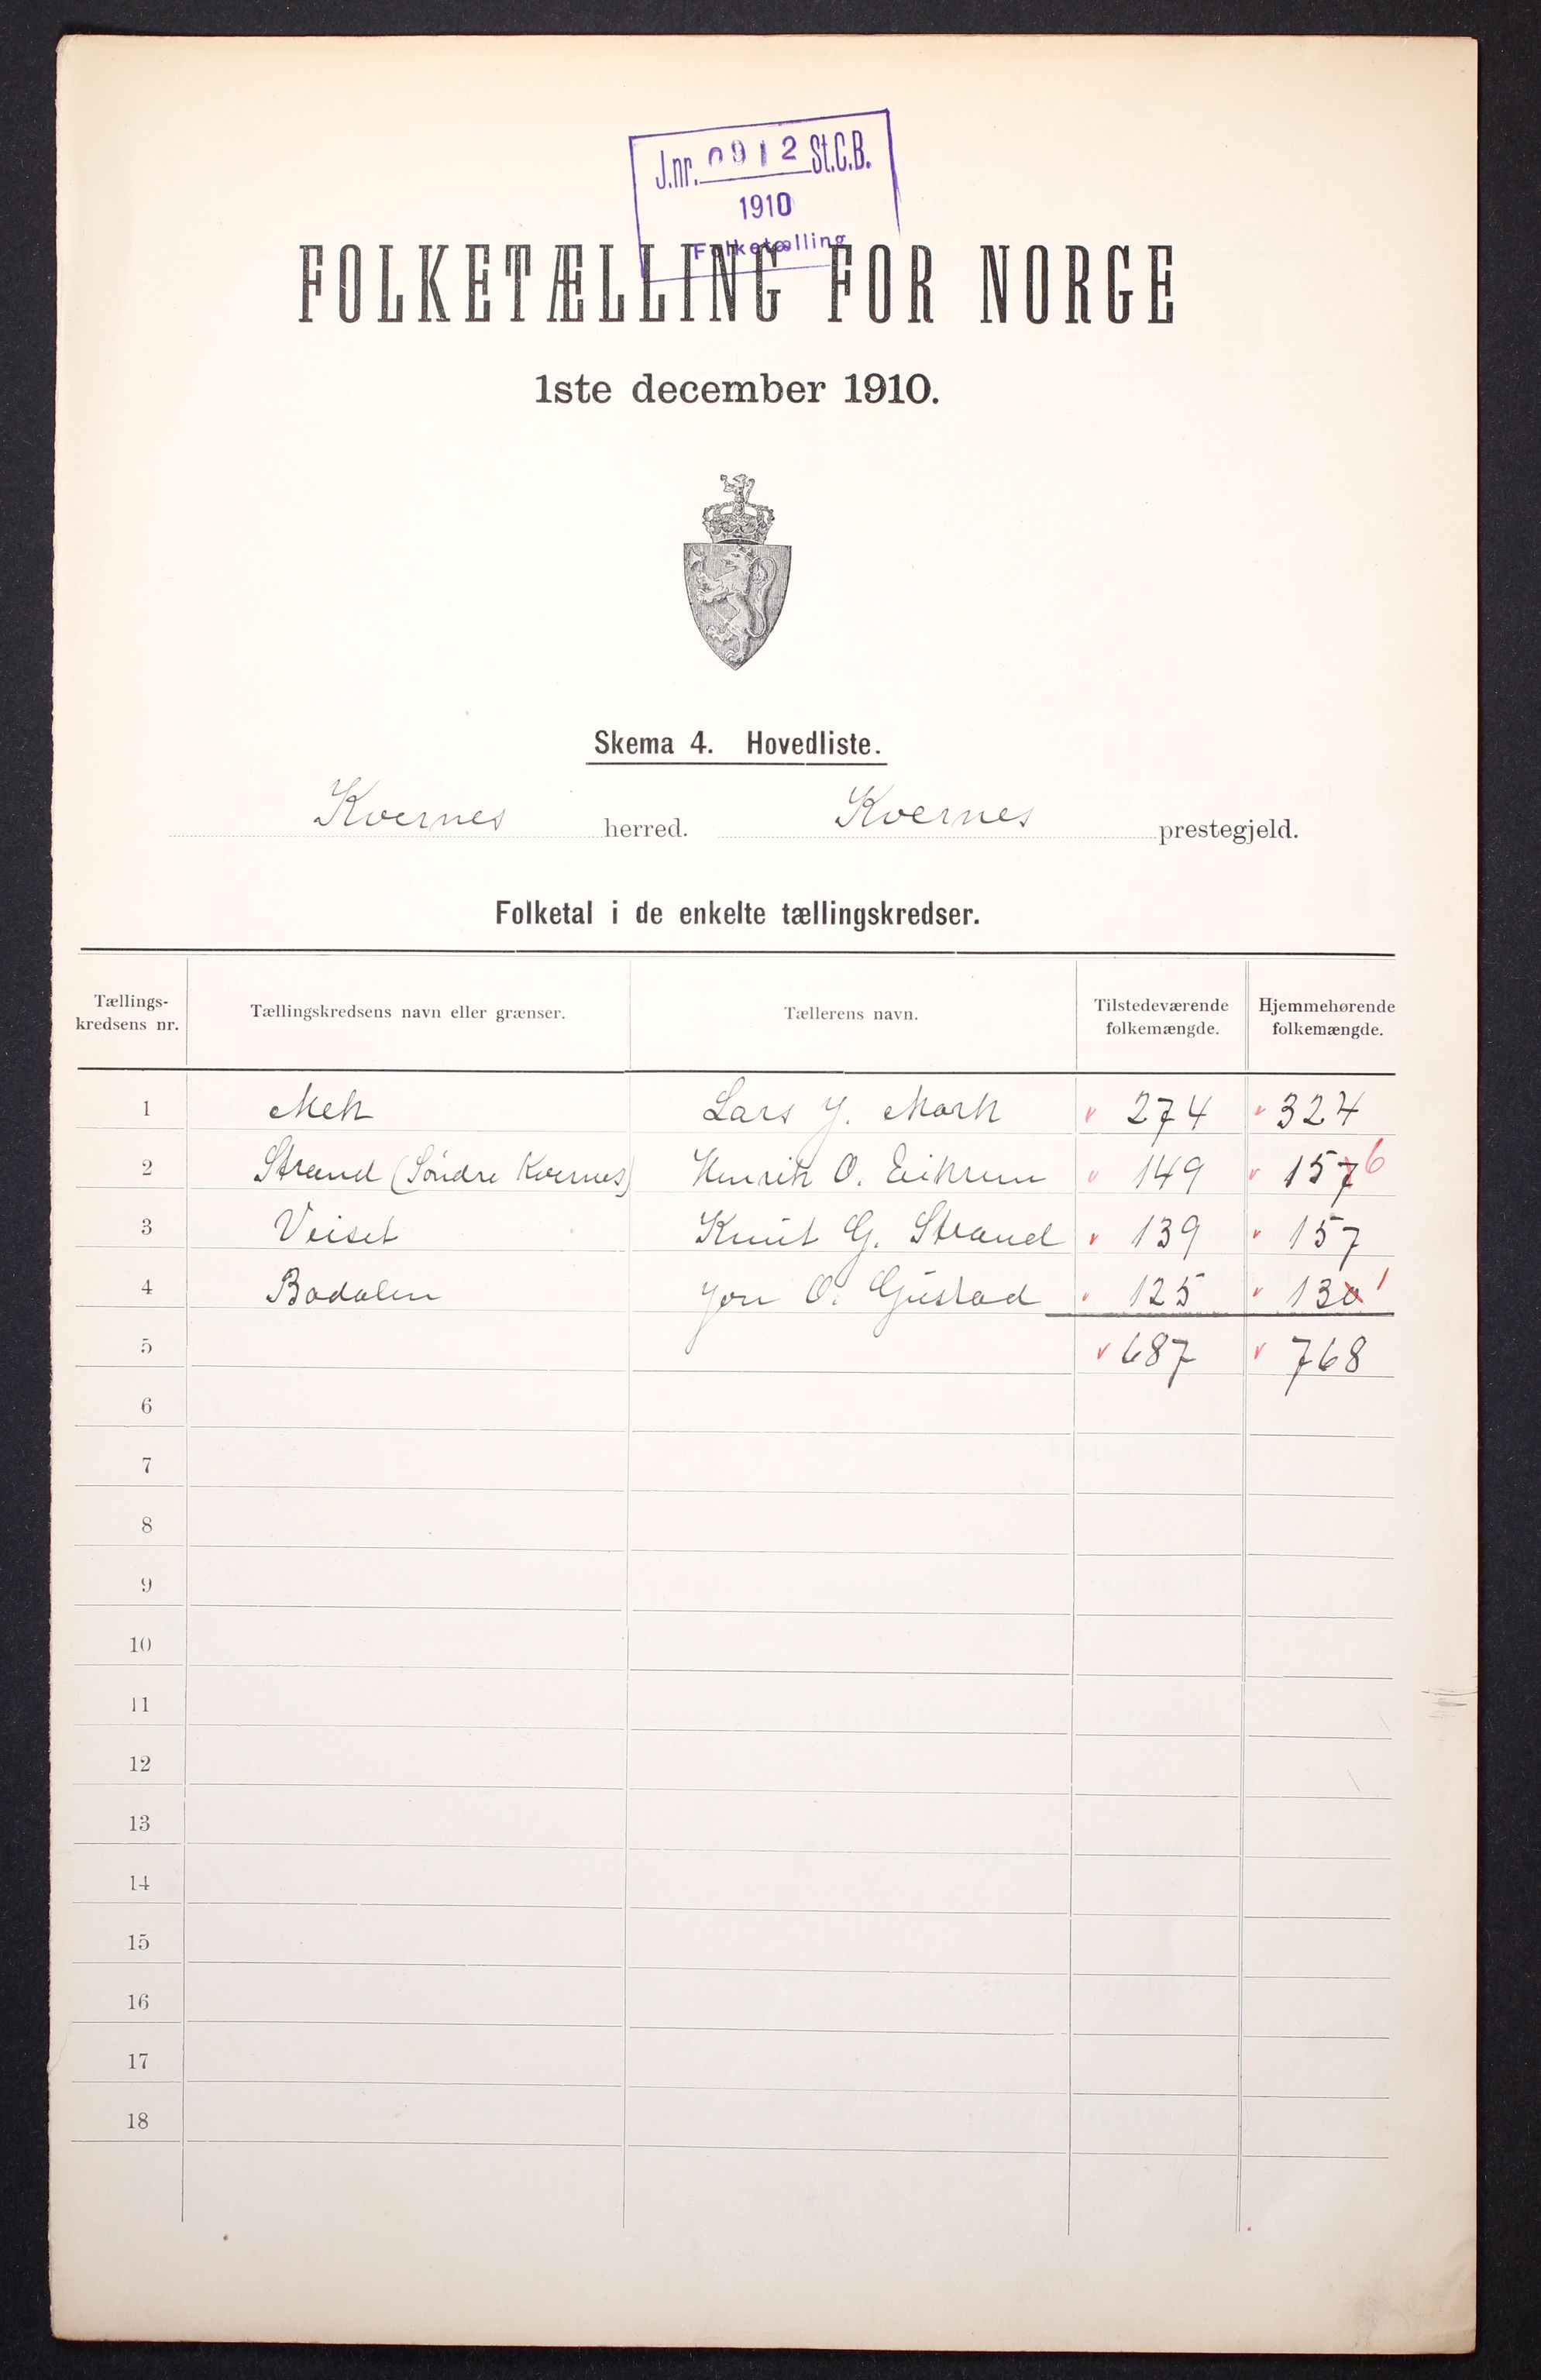 J.nr. 0912 St.C.B.
1910
Folketælling
FOLKETÆLLING FOR NORGE
1ste december 1910.
Skema 4. Hovedliste.
Kvernes herred. Kvernes prestegjeld.
Folketal i de enkelte tællingskredser.
Tællings-kredsens nr. Tællingskredsens navn eller grænser. Tællerens navn. Tilstedeværende folkemængde. Hjemmehørende folkemængde.
1 Mek Lars J. Mork v 274 v 324
2 Strand (Söndre Kvernes) Henrik O. Eikrem v 149 v 157 6
3 Veiset Knut G. Strand v 139 v 157
4 Bodalen Jon O. Gustad v 125 v 130 1
5 v 687 v 768
6
7
8
9
10
11
12
13
14
15
16
17
18